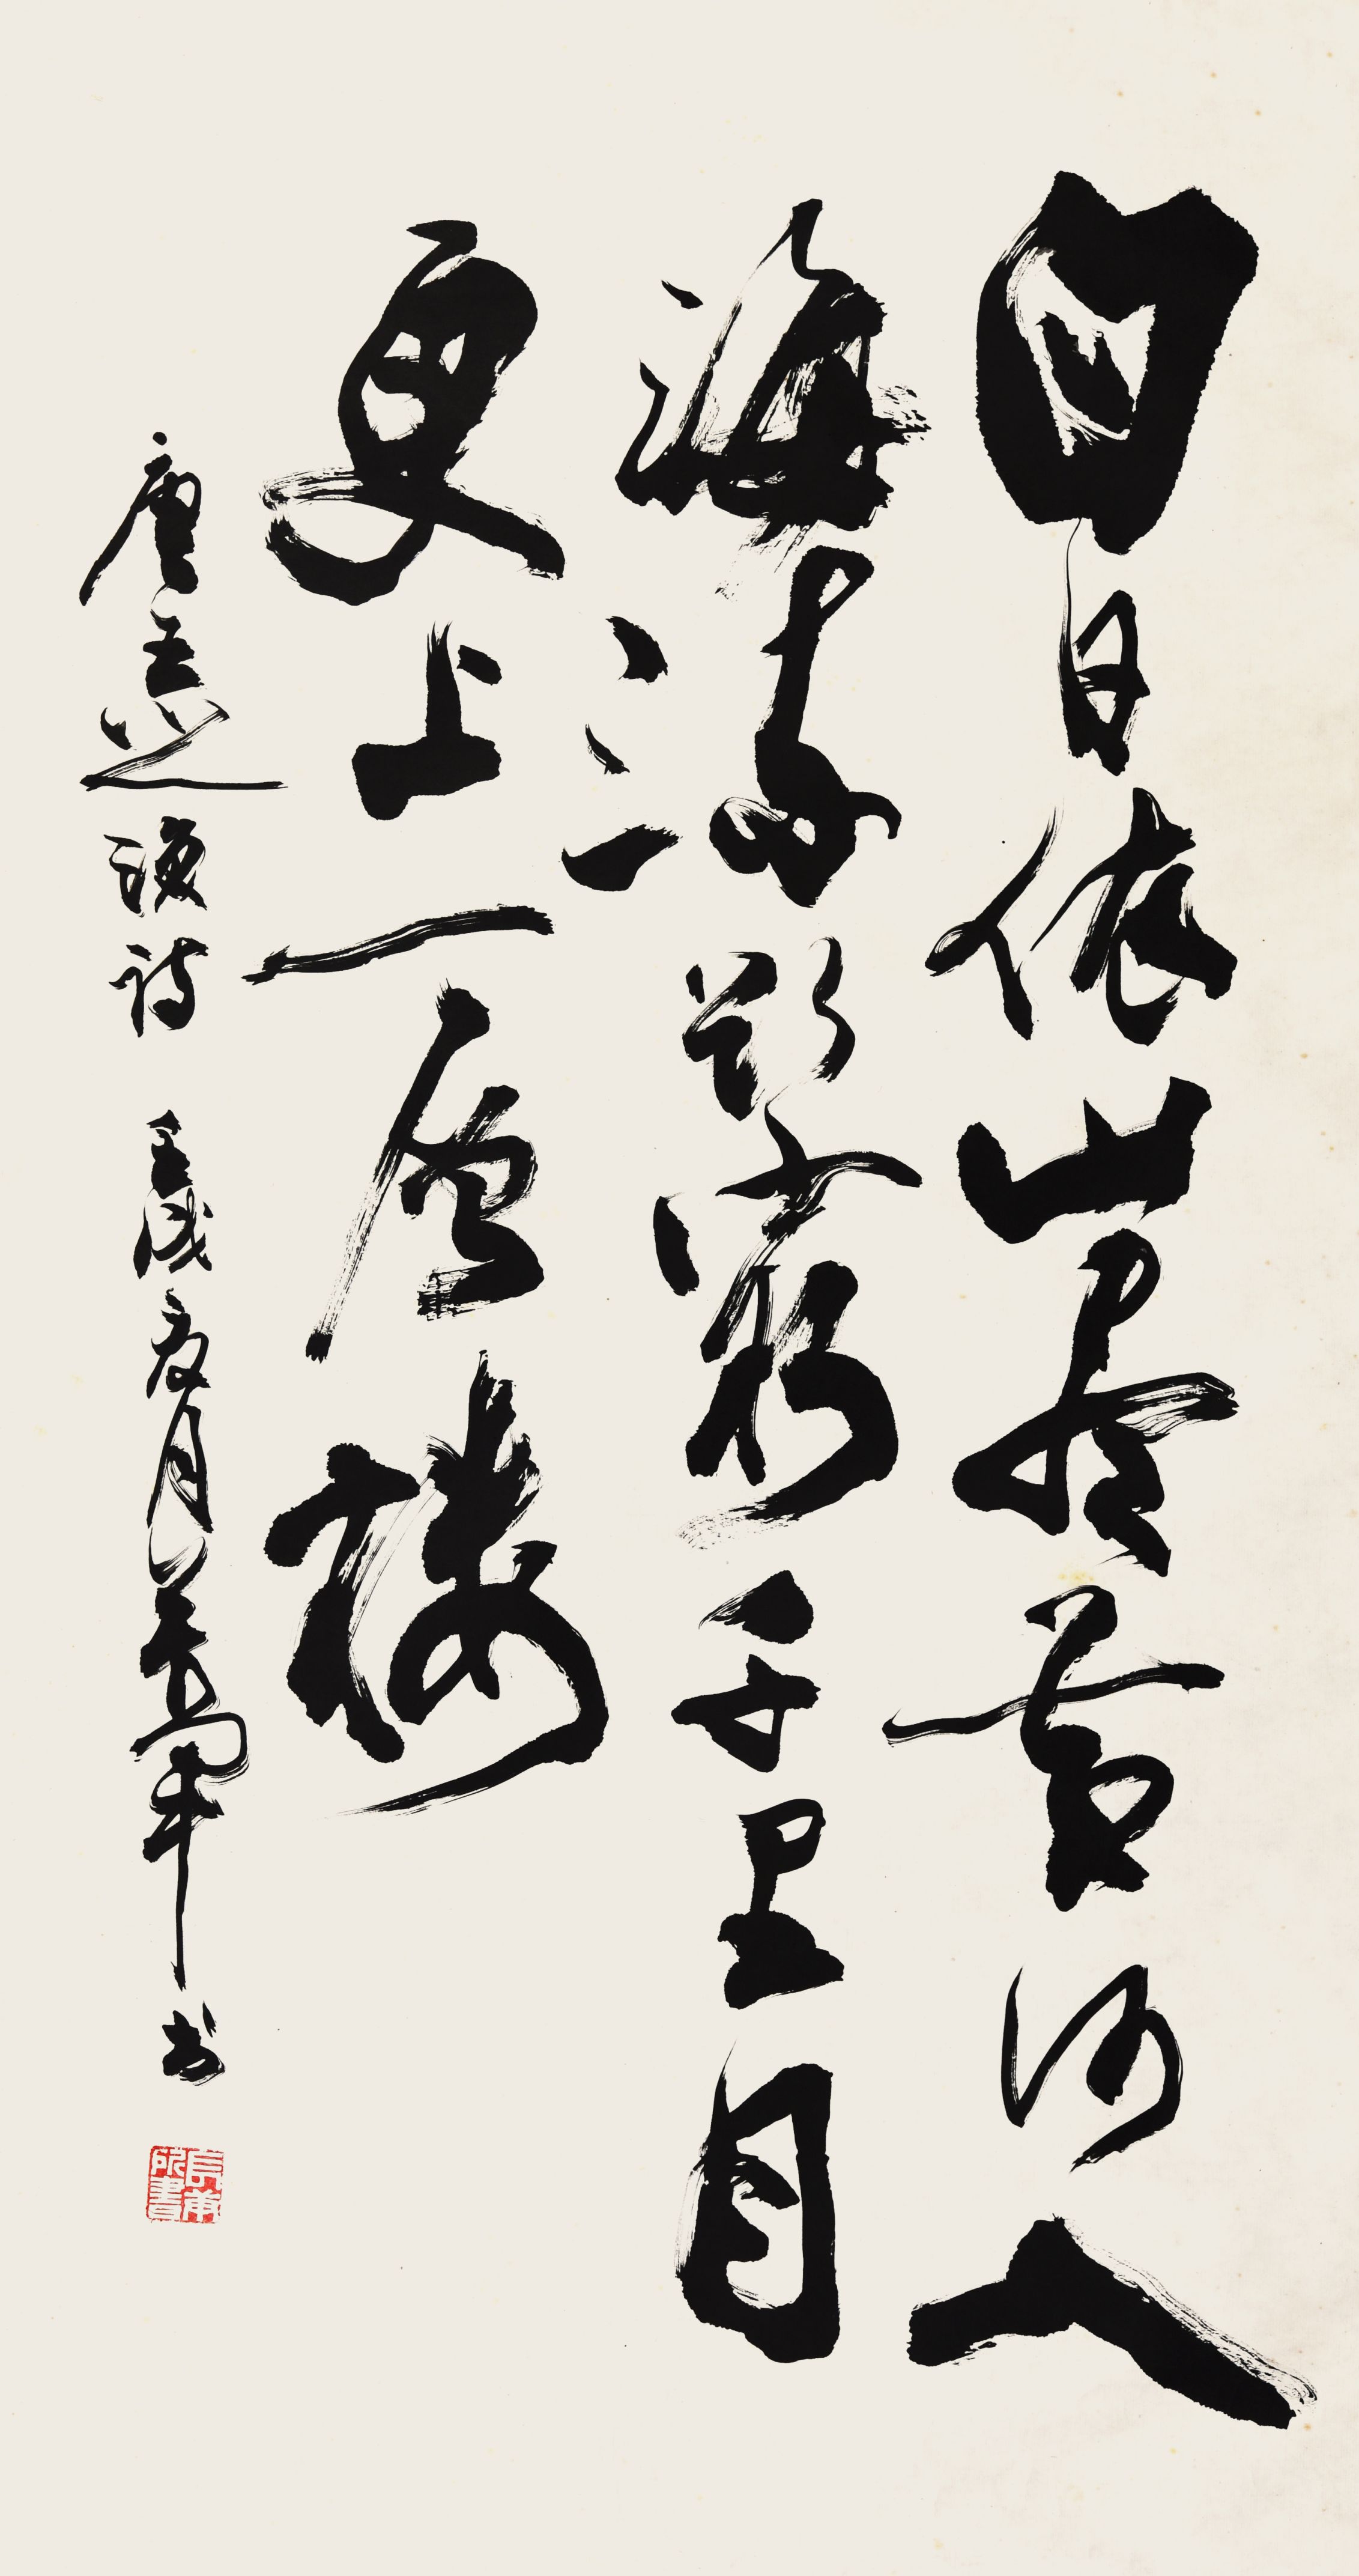 白日依山尽黄河入
海流欲穷千里目
更上一层楼
唐王之涣诗 壬戌夏月 书